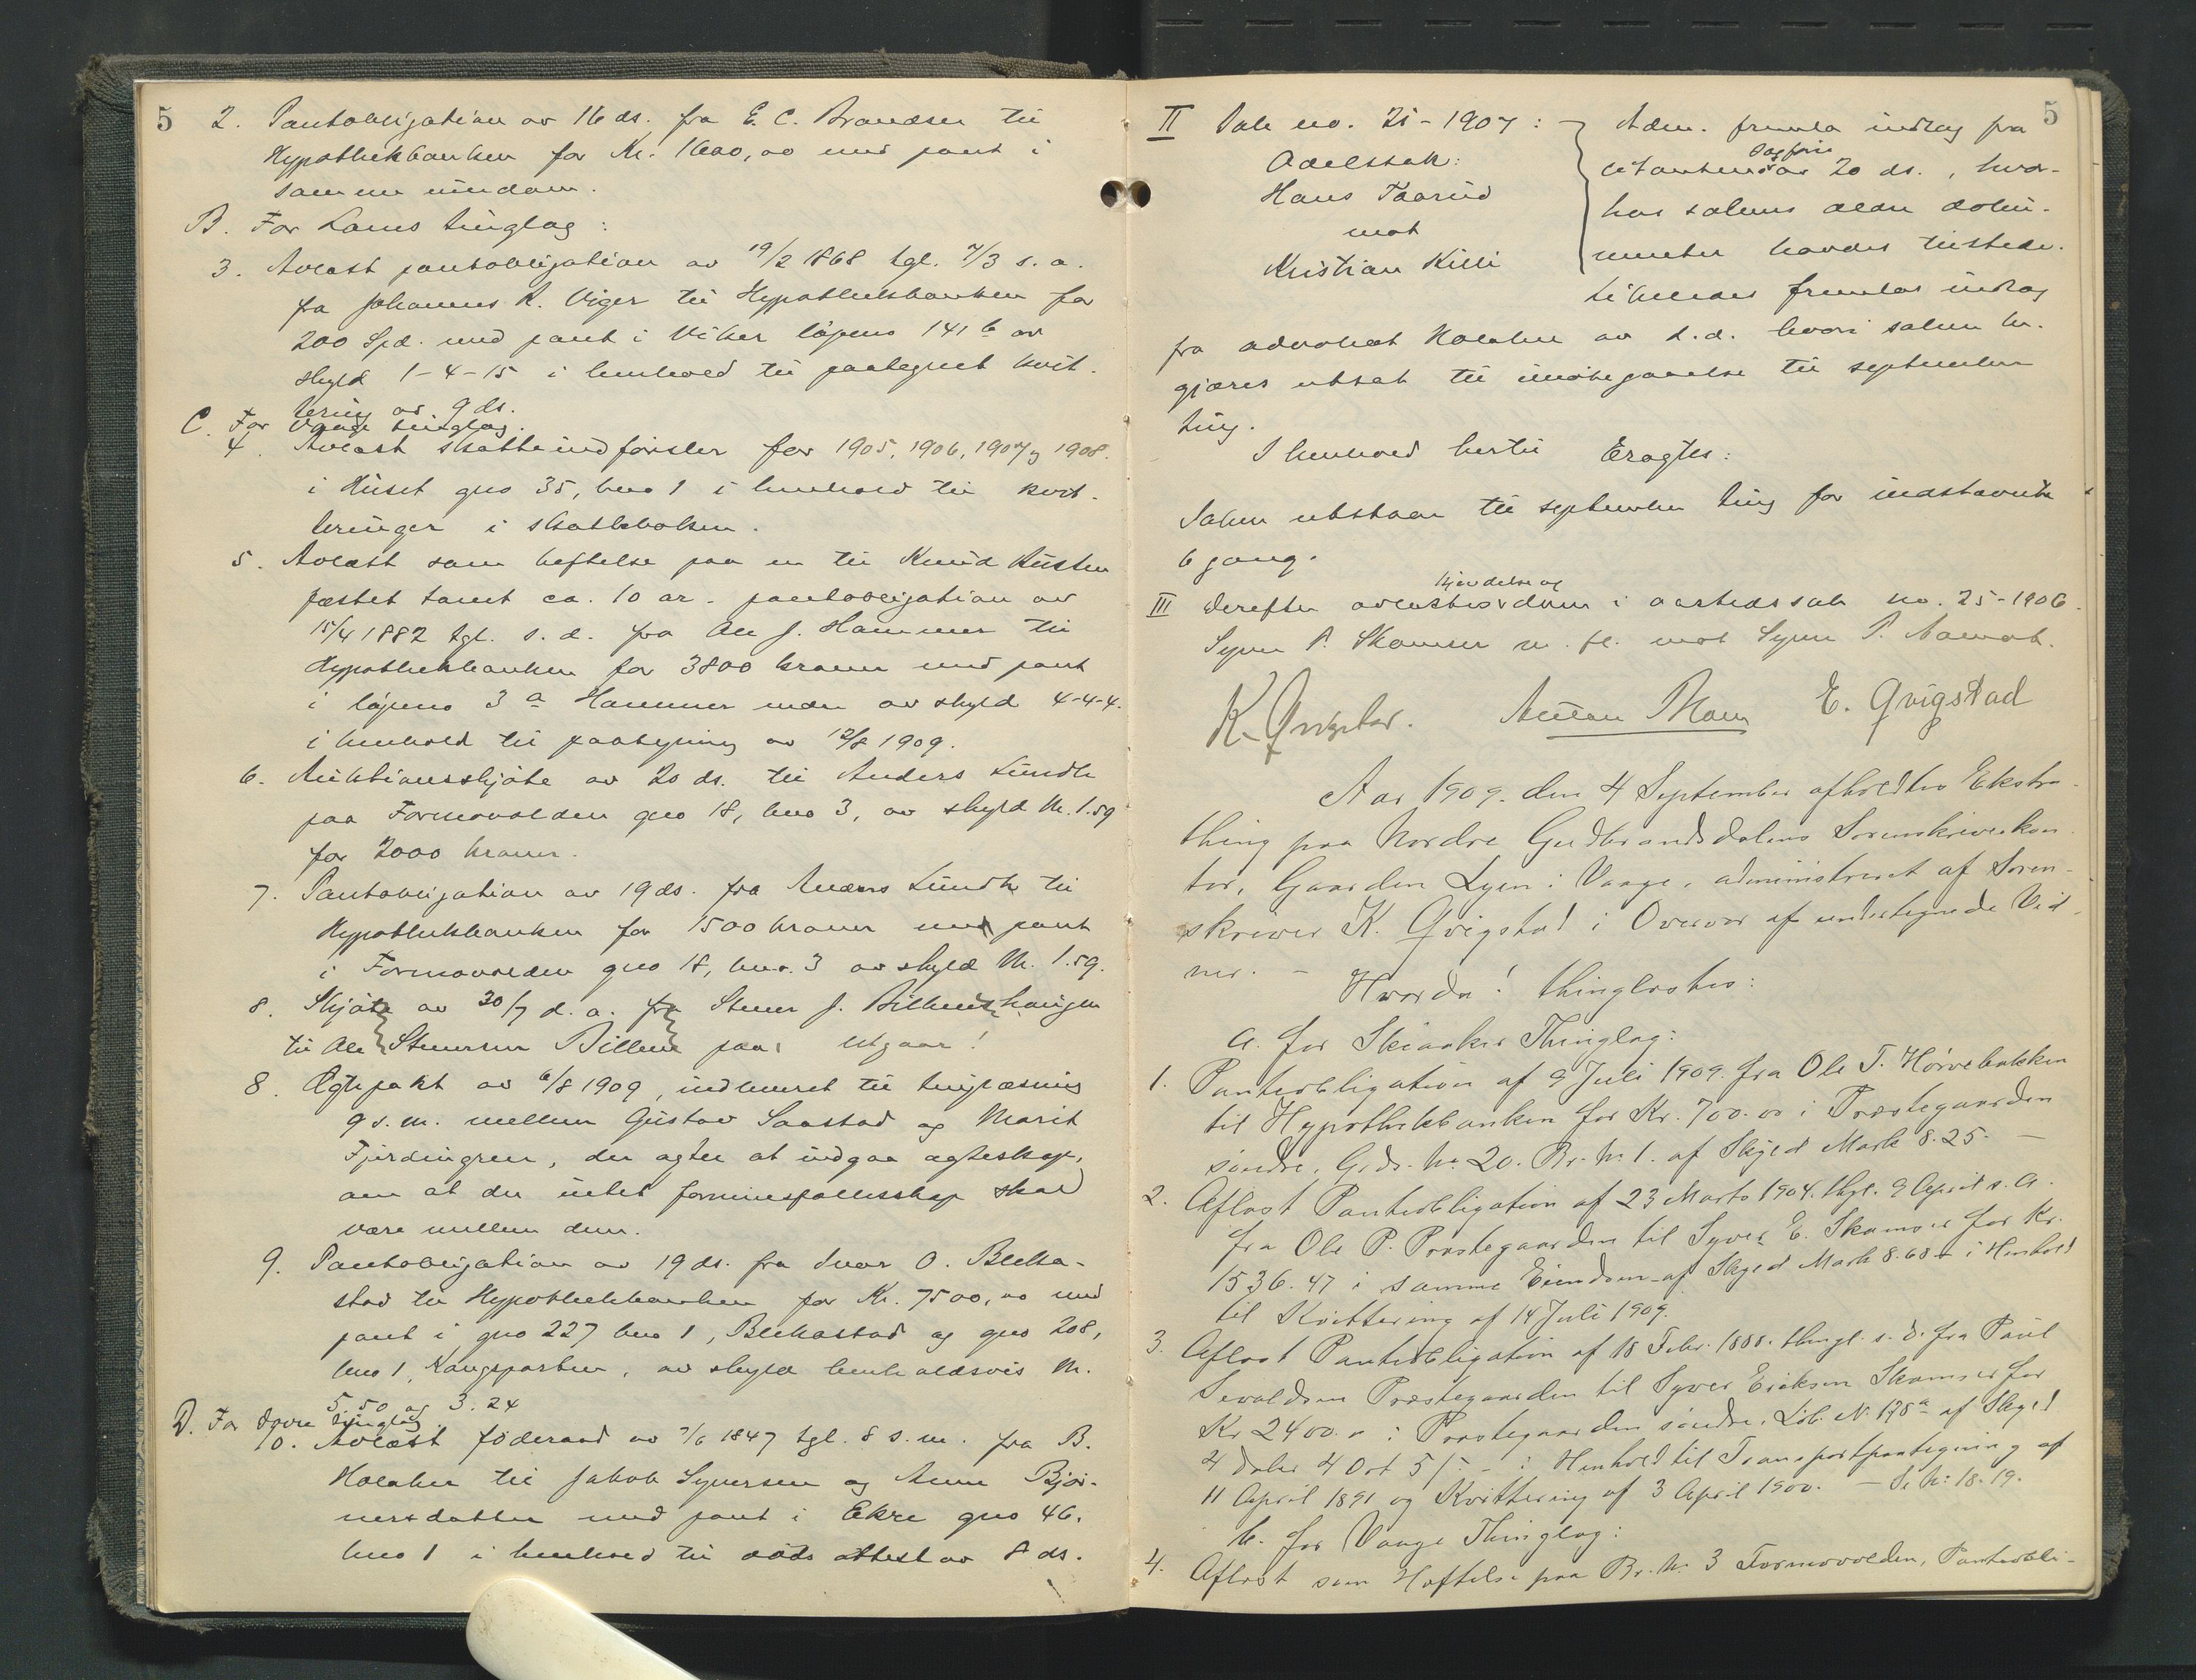 5
2. Pantobligation av 16 ds. fra E. C. Brandser til
Hypothekbanken for Kr. 1600,00 med pant i
samme eiendom.
B. For Loms tinglag:
3. Avlæst pantobligation av 19/2 1868 tgl. 7/3 s. a.
fra Johannes K. Viger til Hypothekbanken for
200 Spd. med pant i Viker löpeno 141 b av
skyld 1-4-15 i henhold til paategnet kvit-
tering av 9 ds.
C. For Vaage tinglag.
4. Avlæst skatteindförsler for 1905, 1906, 1907 og 1908.
i Huset gno 35, bno 1 i henhold til kvit-
teringer i skatteboken.
5. Avlæst som heftelse paa en til Knud Rusten
fæstet tomt ca. 10 ar. pantobligation av
15/4 1882 tgl. s. d. fra Ole J. Hammer til
Hypothekbanken for 3800 kroner med pant
i löpeno 3 a Hammer av skyld 4-4-4.
i henhold til paategning av 12/8 1909.
6. Auktionsskjöte av 20 ds. til Anders Lundh
paa Formovolden gno 18, bno 3, av skyld M. 1.59
for 2000 kroner.
7. Pantobligation av 19 ds. fra Anders Lundh til
Hypothekbanken for 1500 kroner med pant
i Formovolden gno 18, bno. 3 av skyld M. 1.59.
8. Skjöte av 30/7 d. a. fra Stener J. Billendshaugen
til Ole Stenersen Billend paa utgaar!
8. Ægtepakt av 6/8 1909, indleveret til tinglæsning
9 s. m. mellem Gustav Saastad og Marit
Fjerdingren, der agter at indgaa ægteskap,
om at der intet formuesfællesskap skal
være mellem dem.
9. Pantobligation av 19 ds. fra Ivar O. Blekа-
stad til Hypothekbanken for Kr. 7500,00 med
pant i gno 227 bno 1, Blekastad og gno 208,
bno 1, av skyld henholdsvis M.
5.50 og 3.24
D. For Dovre tinglag
10. Avlæst föderaad av 7/6 1847 tgl. 8 s. m. fra B.
Holaker til Jakob Syversen og Anne Björ-
nersdatter med pant i Ekre gno 46.
bno 1 i henhold til döds attest av 8 ds.
5
II Sak no. 21-1907:
Odelssak:
Hans Taarud
mot
Kristian Killi
Adm. fremla indlæg fra
citantens sagförer 20 ds., hvor-
hos sakens ældre doku-
menter havdes tilstede.
Likeledes fremlas indlæg
fra advokat Holaker av s. d. hvori saken be-
gjæres utsat til imötegaaelse til september
ting.
I henhold hertil Eragtes:
Saken utstaar til september ting for indstævnte
6 gang.
III Derefter avlæstes kjendelse og dom i aastedssak no. 25-1906
Syver P. Skamser m. fl. mot Syver P. Aamot.
K. Qvigstad. Anton Moen E. Qvigstad
Aar 1909. den 4 September afholdtes Ekstra-
thing paa Nordre Gudbrandsdalens Sorenskriverkon-
tor, Gaarden Lyen i Vaage, administreret af Soren-
skriver K. Qvigstad i Overvær af undertegnede Vid-
ner. –
Hvorda! thinglæstes:
a. for Skiaker Thinglag:
1. Panteobligation af 9 Juli 1909. fra Ole T. Hörvebakken
til Hypothekbanken for Kr. 700.00 i Præstegaarden
söndre, Grds. No. 20. Br. No. 1. af Skyld Mark 8.25. –
2. Aflæst Panteobligation af 23 Marts 1904. thgl. 9 April s. a.
fra Ole P. Præstegaarden til Syver E. Skamser for Kr.
1536.47 i samme Eiendom af Skyld Mark 8.68 – i Henhold
til Kvittering af 14 Juli 1909.
3. Aflæst Panteobligation af 18 Febr. 1888. thingl. s. d. fra Paul
Sevaldsen Præstegaarden til Syver Eriksen Skamser for
Kr 2400.00 i Præstegaarden söndre, Löb. N. 178a af Skyld
4 Daler 4 Ort 5 /. – i Henhold til Transportpaategning af
11 April 1891 og Kvittering af 3 April 1900. – Se No: 18-19.
b. for Vaage Thinglag:
4. Aflæst som Heftelse paa Br. No. 3 Formovolden, Panteobli-